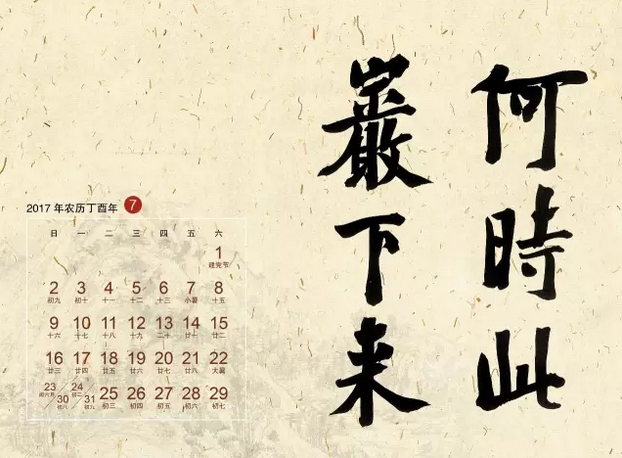 何時此
巖下来
2017 年农历丁酉年 7
日 一 二 三 四 五 六
1
建党节
2 3 4 5 6 7 8
初九 初十 十一 十二 十三 小暑 十五
9 10 11 12 13 14 15
十六 十七 十八 十九 二十 廿一 廿二
16 17 18 19 20 21 22
廿三 廿四 廿五 廿六 廿七 廿八 大暑
23 24 25 26 27 28 29
闰六月 初二 初三 初四 初五 初六 初七
30 31
初八 初九